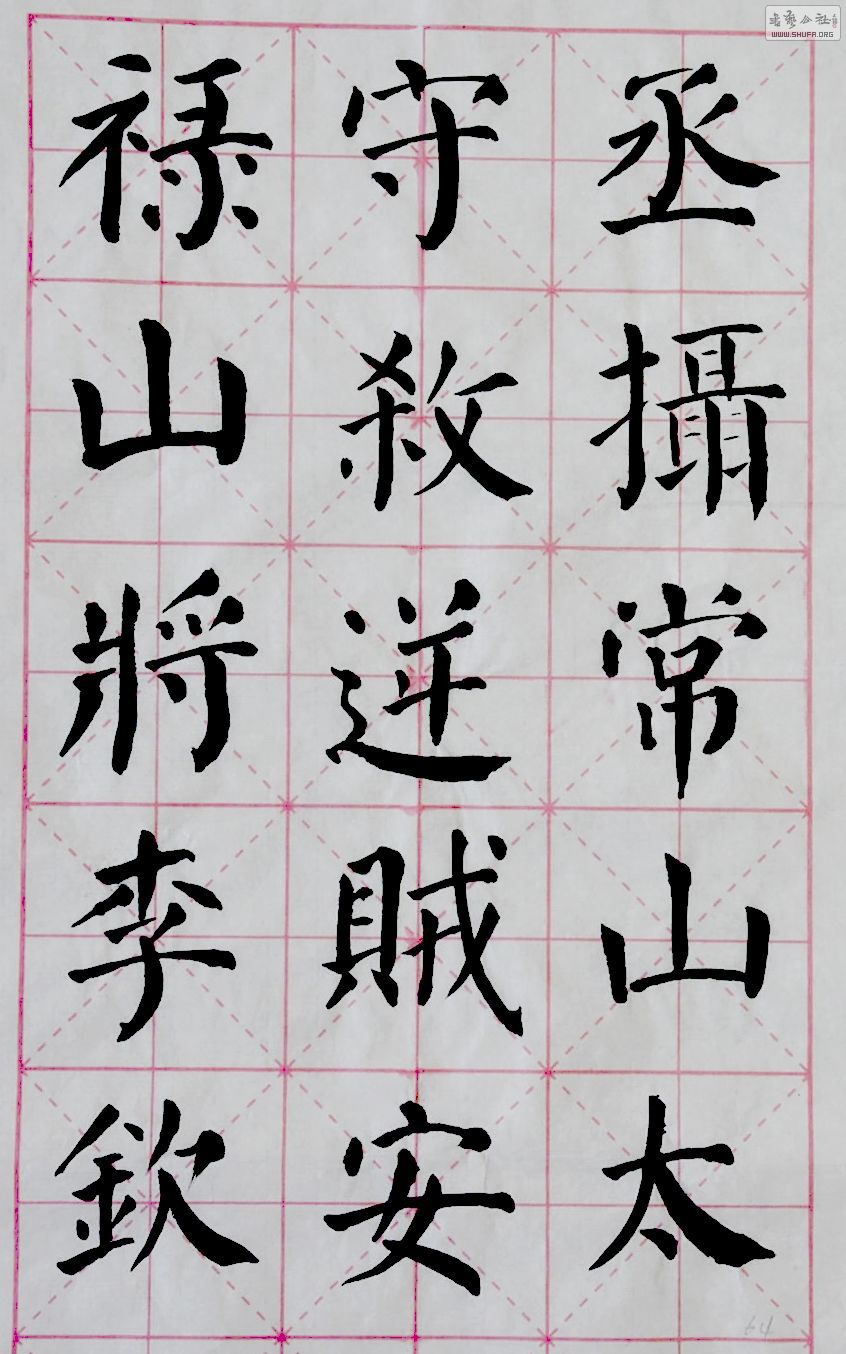 丞攝常山太
守殺逆賊安
禄山將李欽
書藝公社
WWW.SHUFA.ORG
64